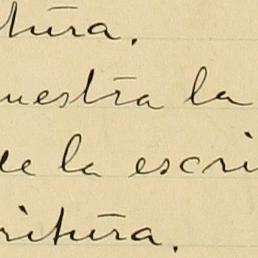 tura.
uestra la
de la escri
ritura.